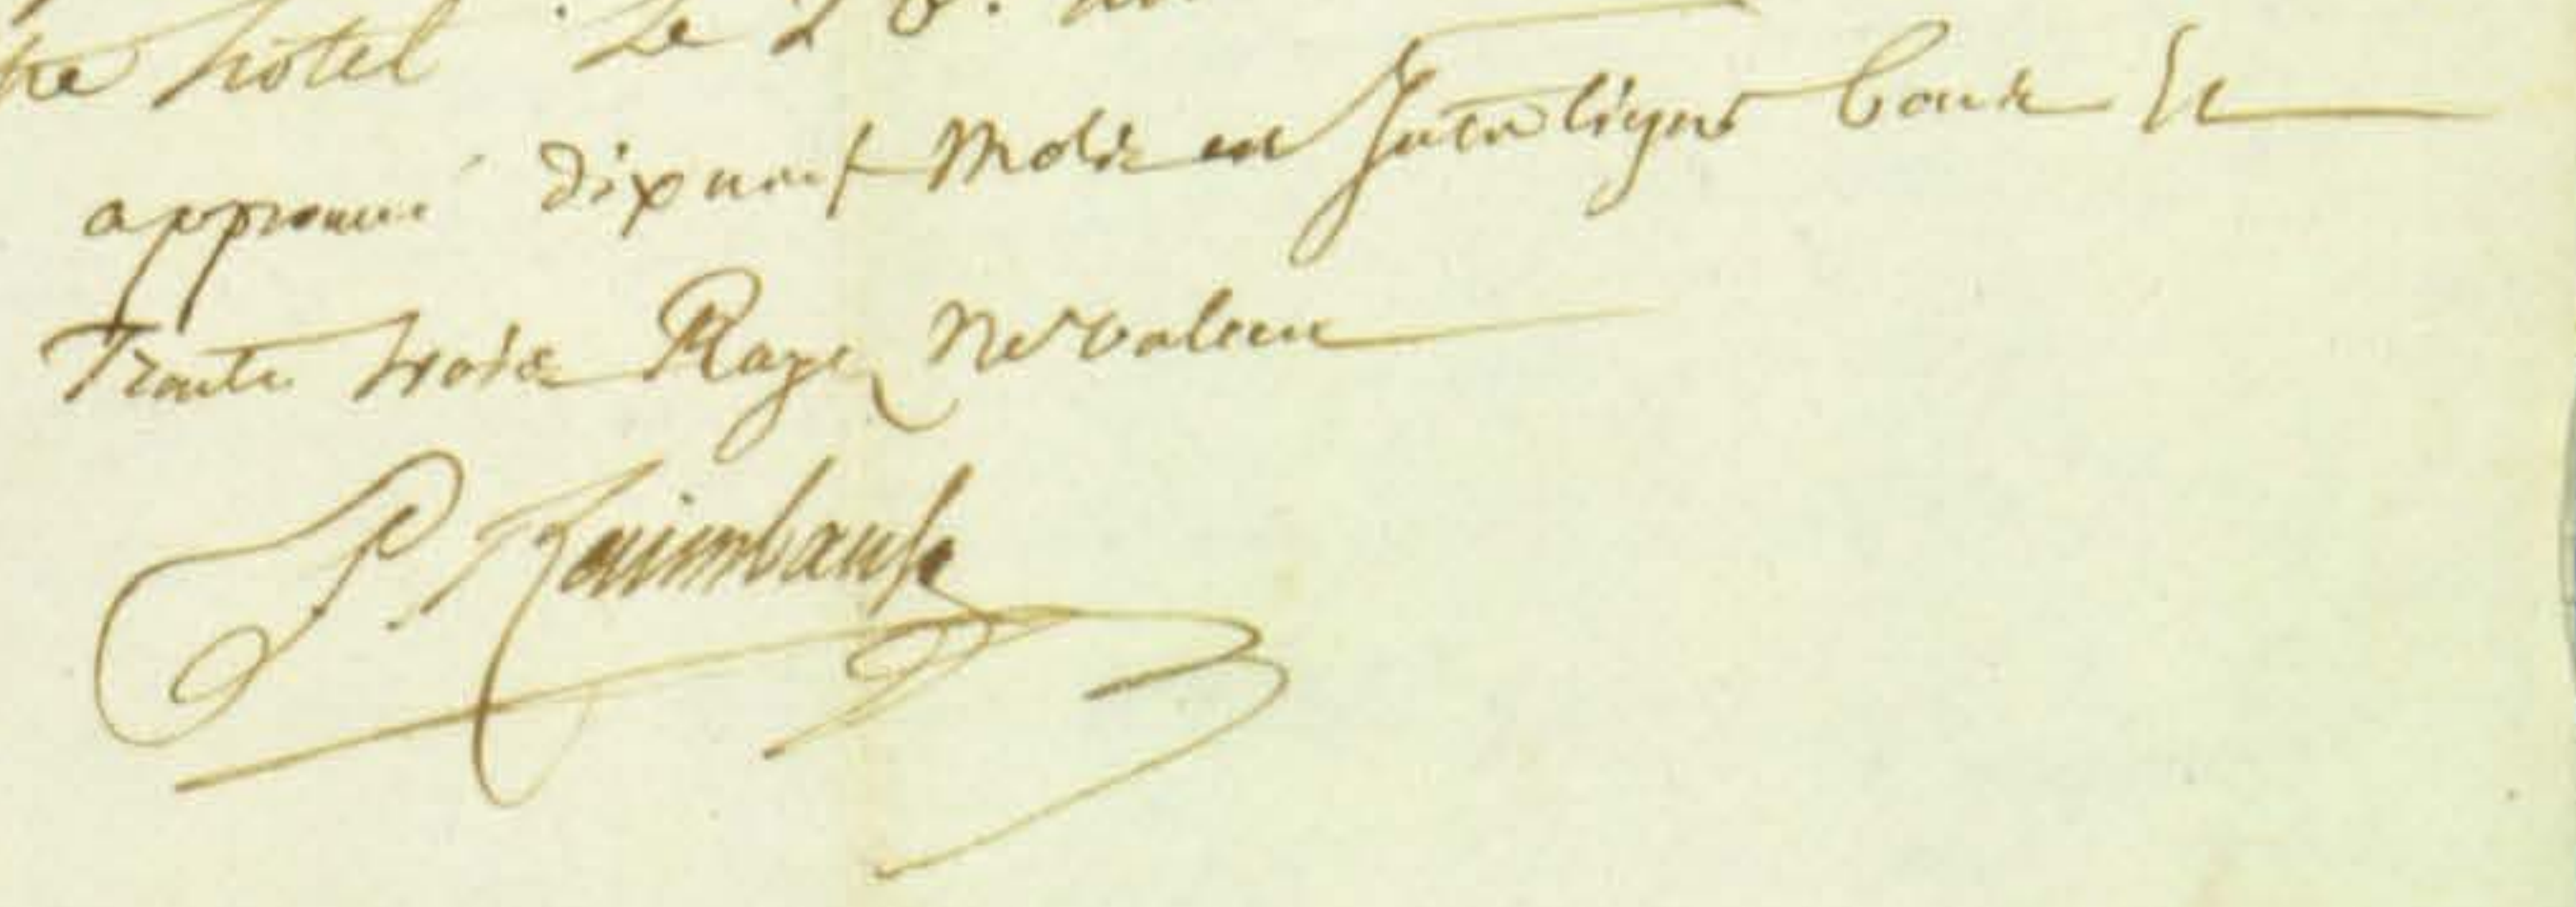 hôtel Le
approuvé dix neuf Mots en Interligne bons Et
Trente trois Rayez Ne valeur
P. Raimbault